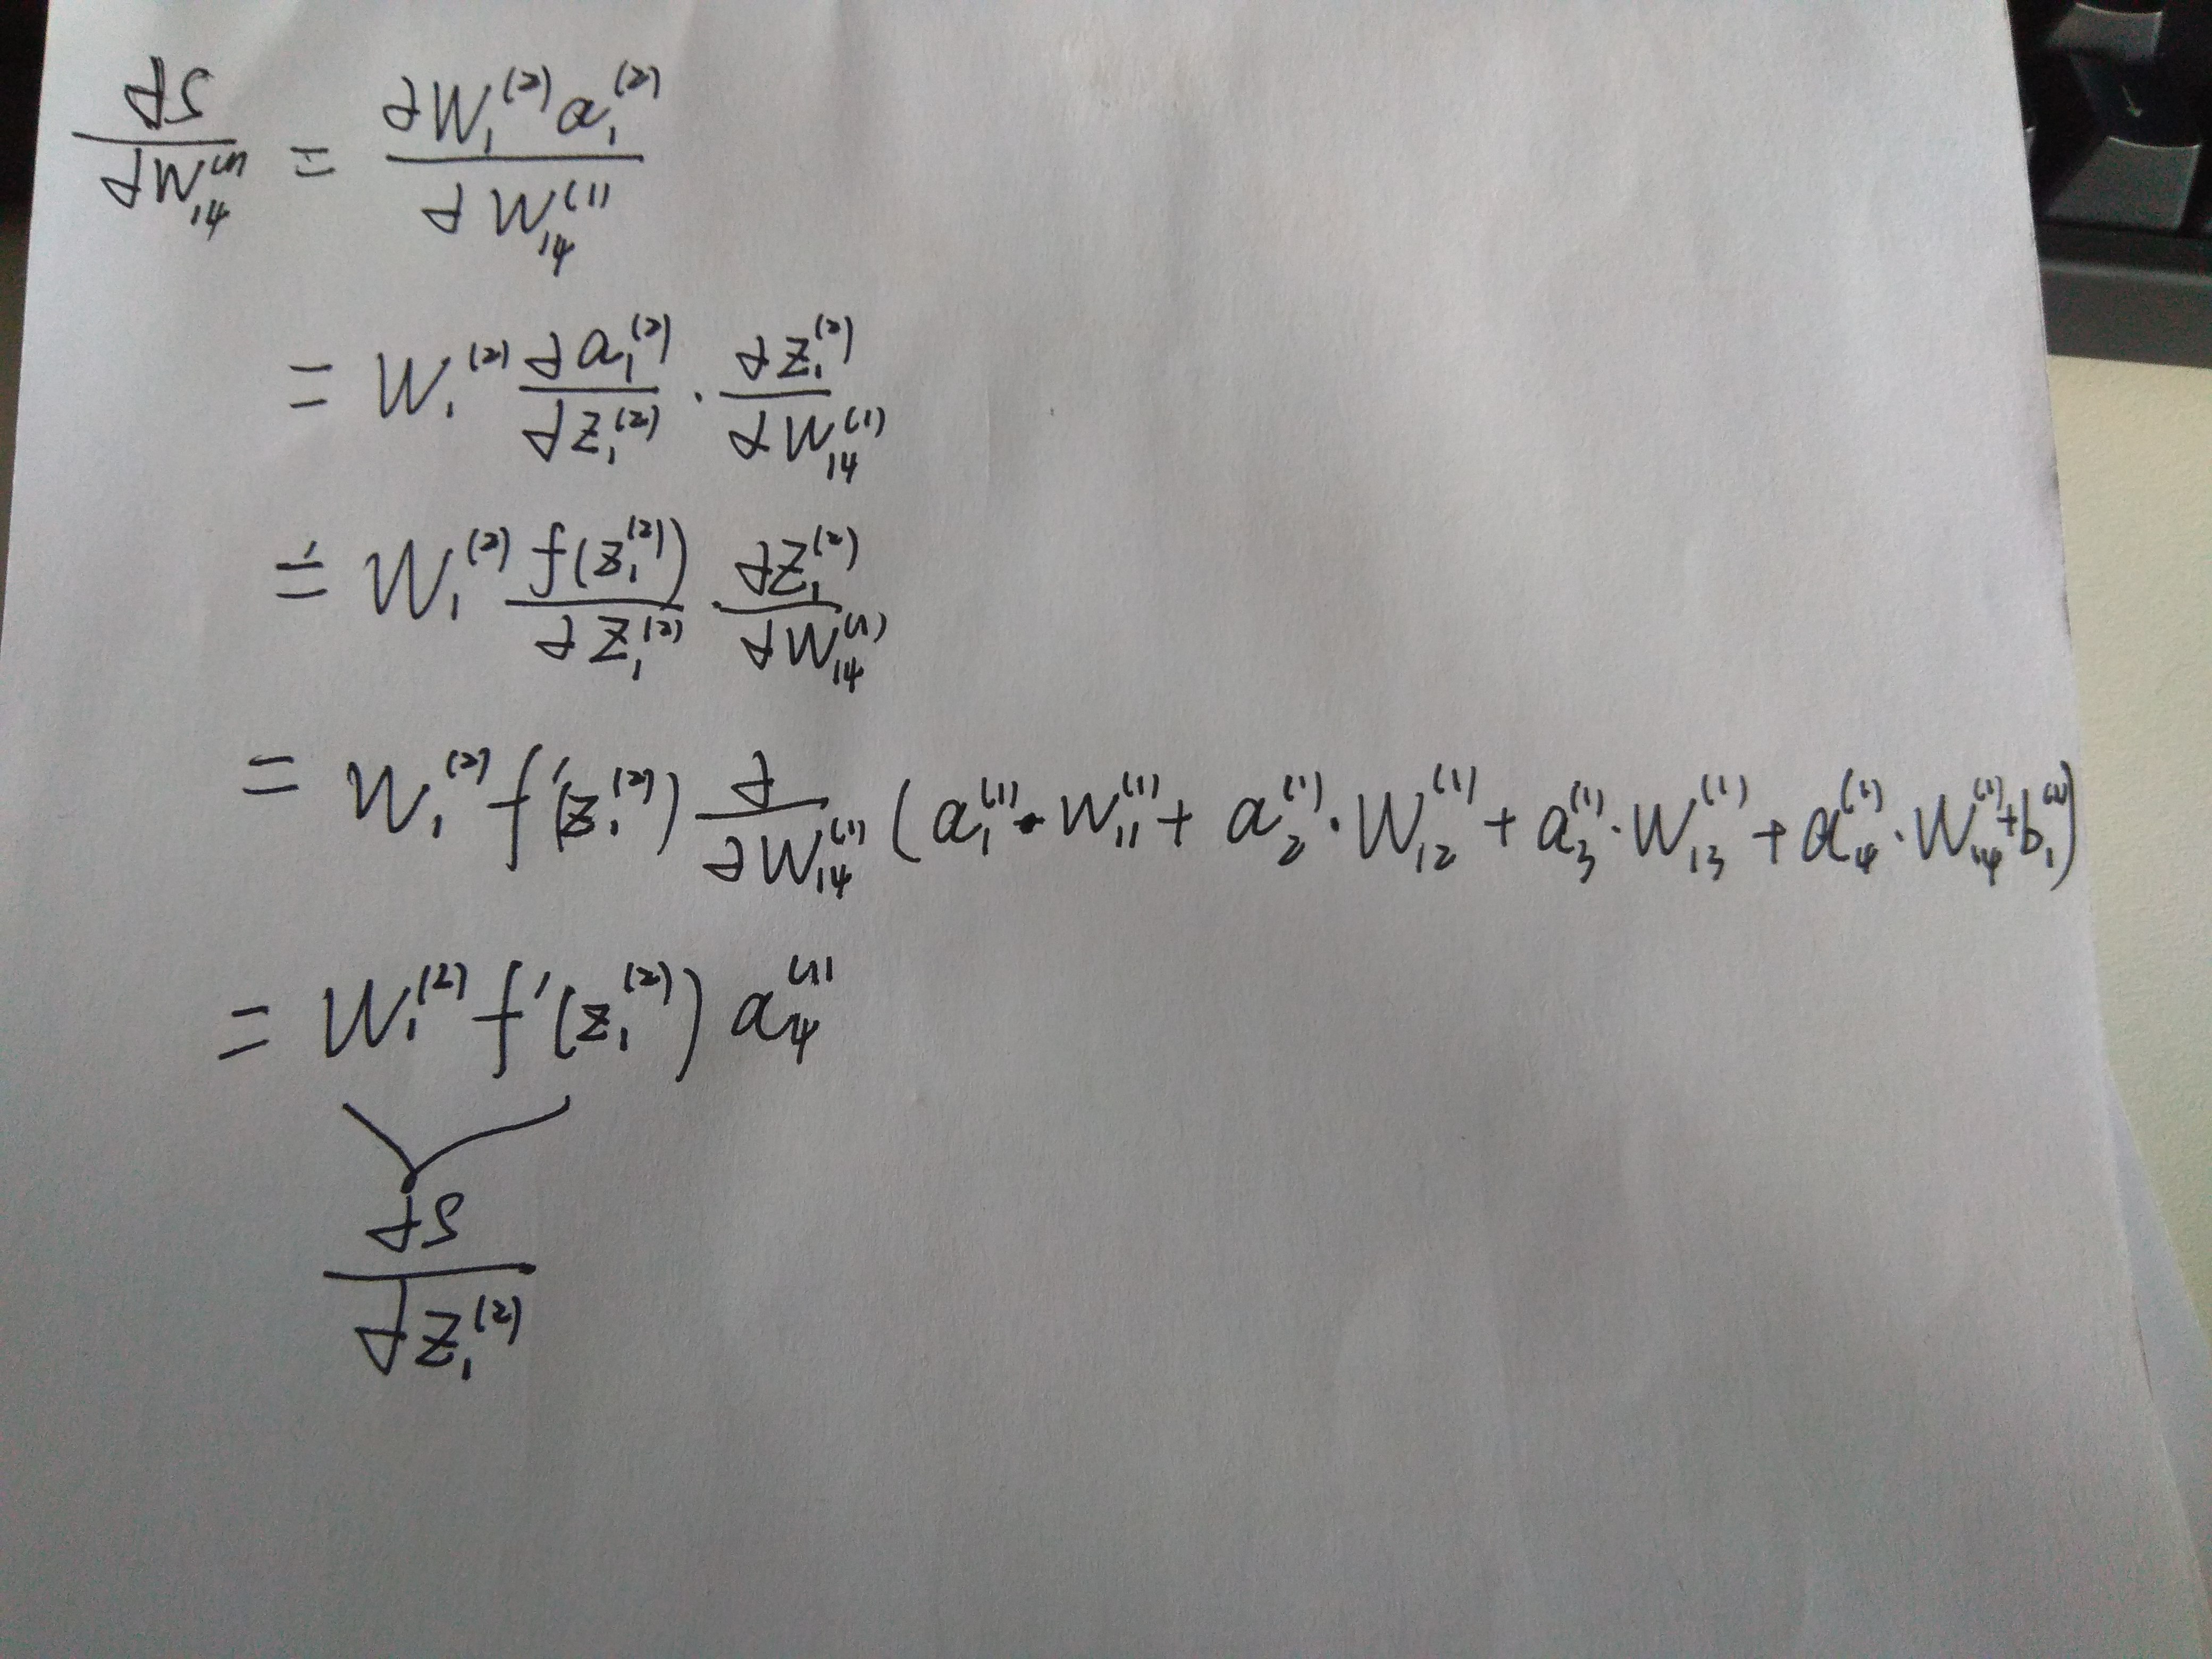 ∂S/∂W₁₄⁽¹⁾ = ∂W₁⁽²⁾a₁⁽²⁾/∂W₁₄⁽¹⁾
= W₁⁽²⁾ ∂a₁⁽²⁾/∂z₁⁽²⁾ · ∂z₁⁽²⁾/∂W₁₄⁽¹⁾
= W₁⁽²⁾ f(z₁⁽²⁾)/∂z₁⁽²⁾ · ∂z₁⁽²⁾/∂W₁₄⁽¹⁾
= W₁⁽²⁾ f′(z₁⁽²⁾) ∂/∂W₁₄⁽¹⁾ (a₁⁽¹⁾·W₁₁⁽¹⁾ + a₂⁽¹⁾·W₁₂⁽¹⁾ + a₃⁽¹⁾·W₁₃⁽¹⁾ + a₄⁽¹⁾·W₁₄⁽¹⁾ + b₁)
= W₁⁽²⁾ f′(z₁⁽²⁾) a₄⁽¹⁾
∂S/∂z₁⁽²⁾